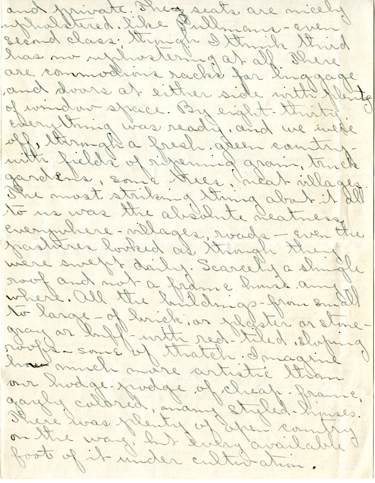 and private. The seats are nicely
upholstered like Pullmans - even
second class; though I think third
has no upholstering at all. There
are commodious racks for luggage
and doors at either side with plenty
of window space. By eight-thirty
everything was ready and we were
off, through a fresh, green country
with fields of ripening grain, truck
gardens, some trees, neat villages.
The most striking thing about it all
to us was the absolute neatness
everywhere - villages, roads - even the
pastures looked as though they
were swept daily. Scarcely a shingle
roof and not a frame house any
where. All the buildings - from small
to large - of brick, or plaster or stone -
gray or buff - with red-tiled, sloping
roofs - some of thatch. Imagine
how much more artistic than
our hodge-podge of cheap-frame,
gayly colored, many styled-houses.
There was plenty of open country
on the way but every available
foot of it under cultivation.